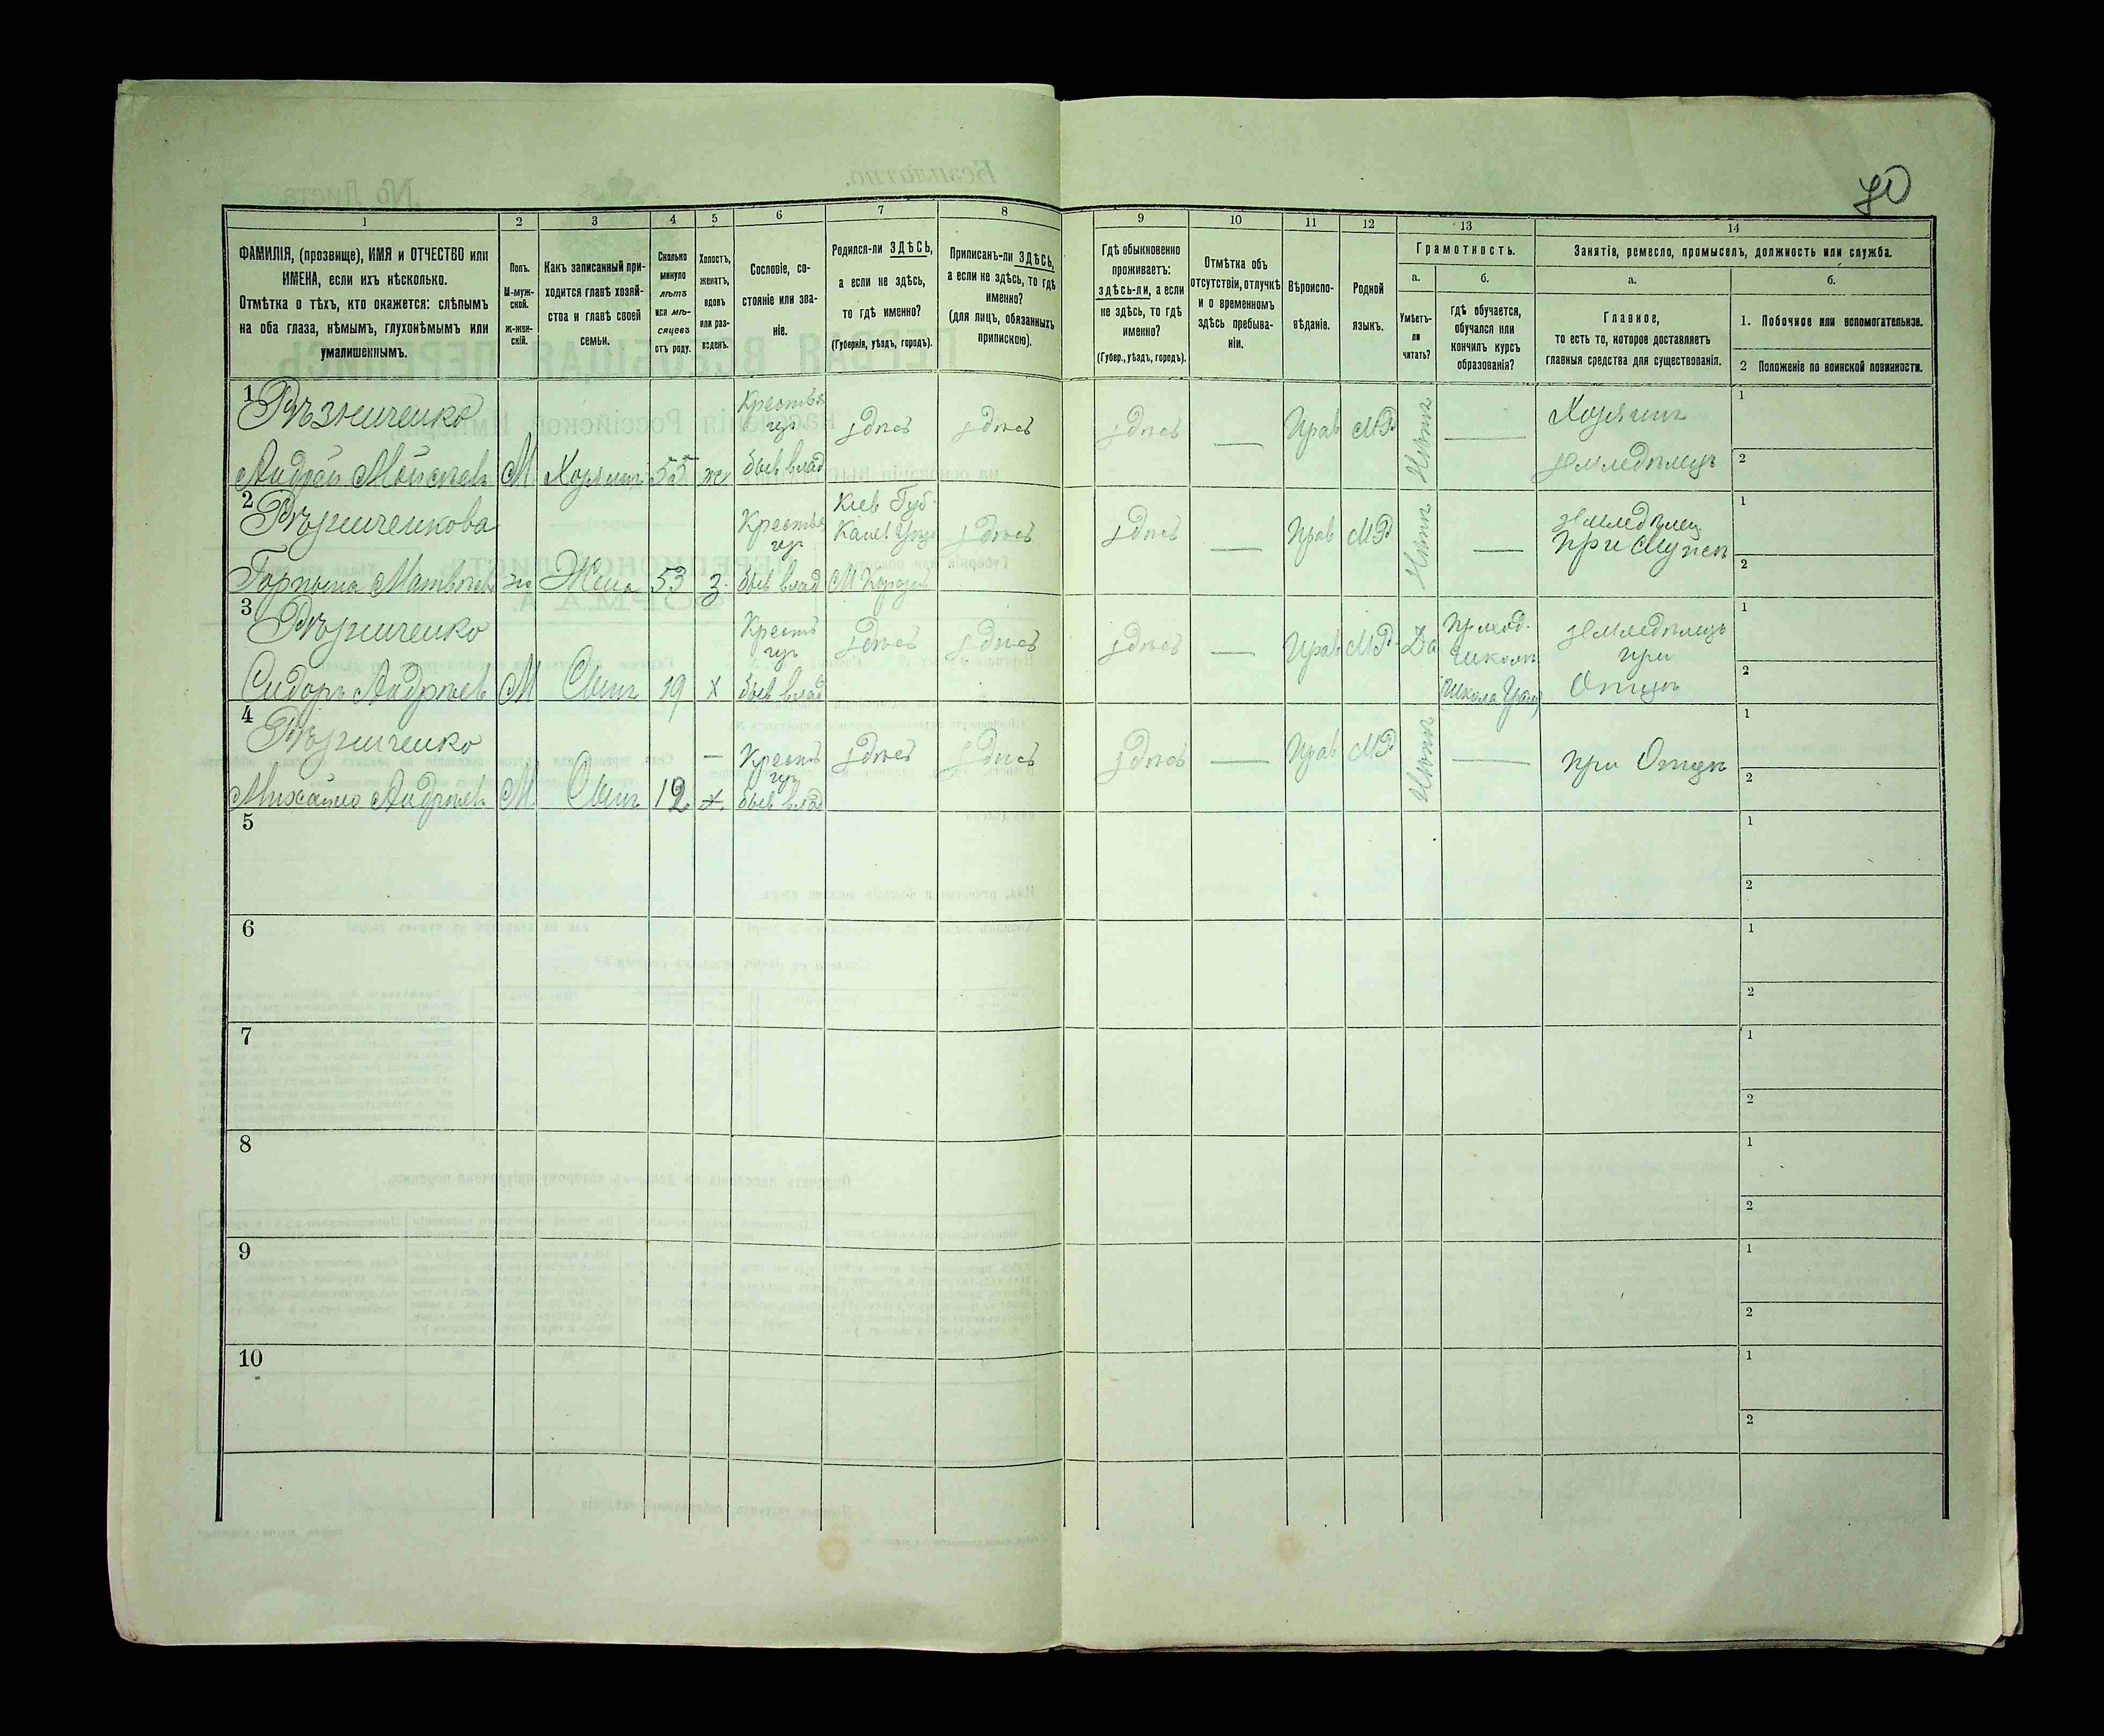 70
1 2 3 4 5 6 7 8 9 10 11 12 13 14
ФАМИЛІЯ, (прозвище), ИМЯ и ОТЧЕСТВО или
ИМЕНА, если ихъ нѣсколько.
Отмѣтка о тѣхъ, кто окажется: слѣпымъ
на оба глаза, нѣмымъ, глухонѣмымъ или
умалишеннымъ.
Полъ.
М-муж-
ской.
Ж-жен-
скій.
Какъ записанный при-
ходится главѣ хозяй-
ства и главѣ своей
семьи.
Сколько
минуло
лѣтъ
или мѣ-
сяцевъ
отъ роду.
Холостъ,
женатъ,
вдовъ
или раз-
веденъ.
Сословіе, со-
стояніе или зва-
ніе.
Родился-ли ЗДѢСЬ,
а если не здѣсь,
то гдѣ именно?
(Губернія, уѣздъ, городъ).
Приписанъ-ли ЗДѢСЬ,
а если не здѣсь, то гдѣ
именно?
(для лицъ, обязанныхъ
припискою).
Гдѣ обыкновенно
проживаетъ:
здѣсь-ли, а если
не здѣсь, то гдѣ
именно?
(Губер., уѣздъ, городъ).
Отмѣтка объ
отсутствіи, отлучкѣ
и о временномъ
здѣсь пребыва-
ніи.
Вѣроиспо-
вѣданіе.
Родной
языкъ.
Грамотность.
а.
Умѣетъ-
ли
читать?
б.
гдѣ обучается,
обучался или
кончилъ курсъ
образованія?
Занятія, ремесло, промыселъ, должность или служба.
а.
Главное,
то есть то, которое доставляетъ
главныя средства для существованія.
б.
1. Побочное или вспомогательное.
2 Положеніе по воинской повинности.
1 Рѣзниченко
Андрей Мойсѣевъ М Хозяинъ 55 ж
бывъ влад
здѣсь здѣсь здѣсь — Прав МР Нѣтъ —
Хозяинъ
земледѣлецъ
1
2
2 Рѣзниченкова
Матвѣева Жена 53 з.
бывъ влад
Кіев Губ.
здѣсь здѣсь — Прав МР Нѣтъ —
при Мужѣ
1
2
3 Рѣзниченко
Сидоръ Андрѣев М Сынъ 19 х
бывъ влад
здѣсь здѣсь здѣсь — Прав МР Да
земледѣлецъ
при
Отцѣ
1
2
4 Рѣзниченко
Михайло Андрѣевъ М Сынъ 12 х.
бывъ влад
здѣсь здѣсь здѣсь — Прав МР Нѣтъ —
при Отцѣ
1
2
5 1
2
6 1
2
7 1
2
8 1
2
9 1
2
10 1
2